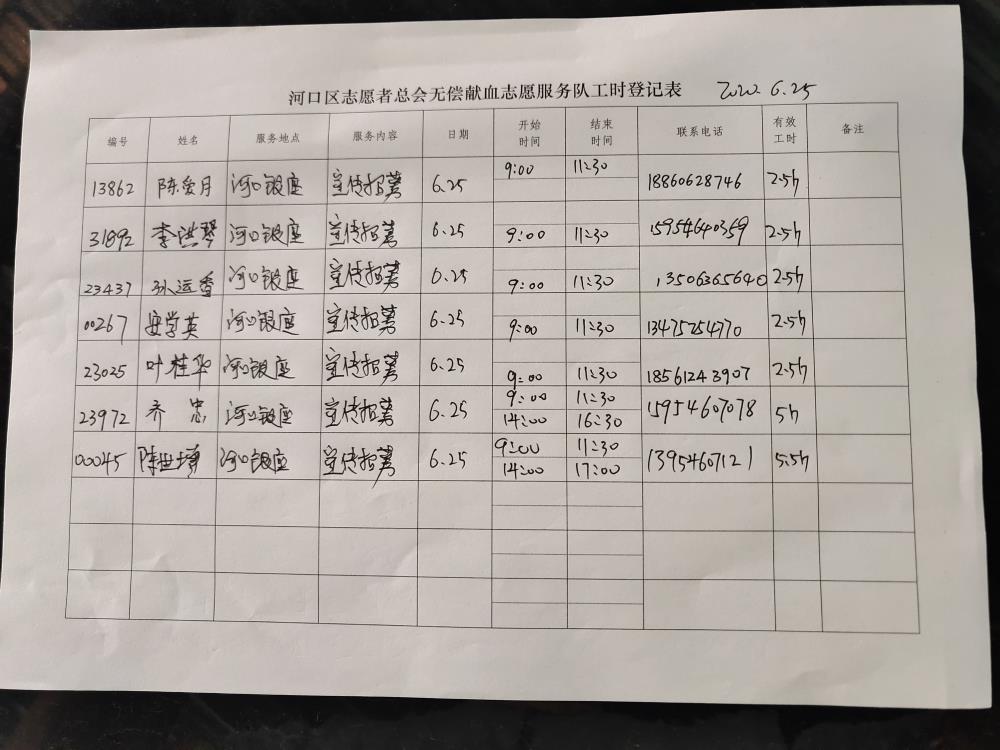 河口区志愿者总会无偿献血志愿服务队工时登记表 2020.6.25
编号 姓名 服务地点 服务内容 日期 开始时间 结束时间 联系电话 有效工时 备注
13862 陈爱月 河口银座 宣传招募 6.25 9:00 11:30 18860628746 2.5h
31892 李洪琴 河口银座 宣传招募 6.25 9:00 11:30 15954640359 2.5h
23437 孙运香 河口银座 宣传招募 6.25 9:00 11:30 13506365640 2.5h
00267 安学英 河口银座 宣传招募 6.25 9:00 11:30 13475254770 2.5h
23025 叶桂华 河口银座 宣传招募 6.25 9:00 11:30 18561243907 2.5h
23972 齐忠 河口银座 宣传招募 6.25 9:00 11:30 15954607078 5h
14:00 16:30
00045 陈世增 河口银座 宣传招募 6.25 9:00 11:30 13954607121 5.5h
14:00 17:00